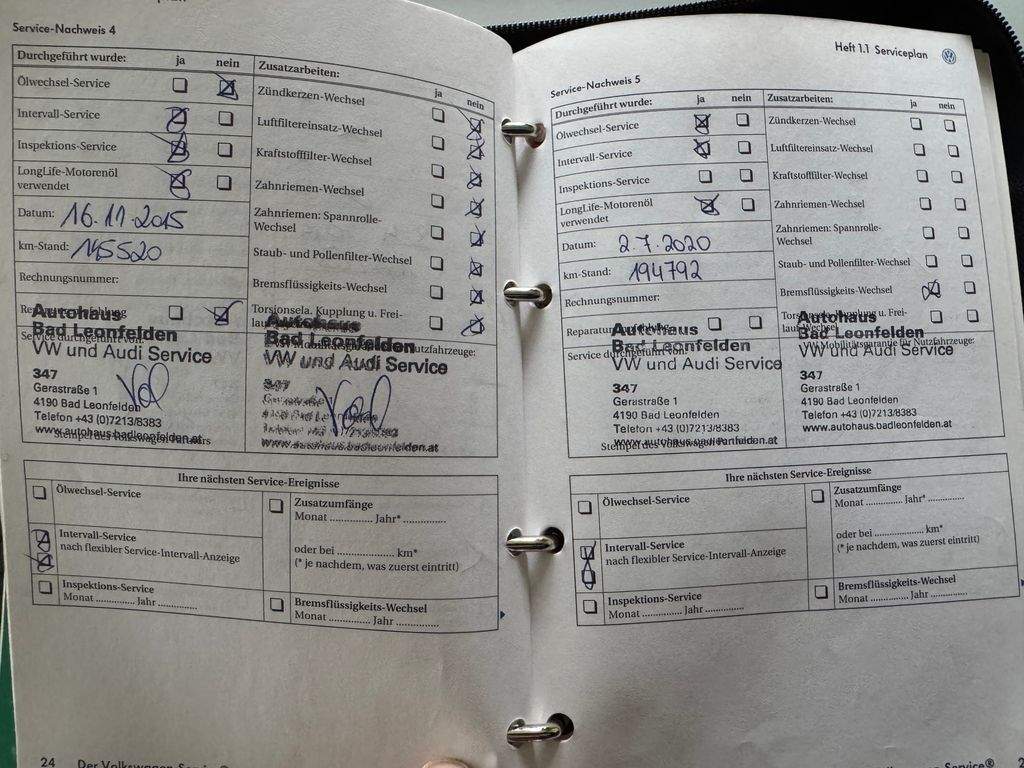 Service-Nachweis 4
Durchgeführt wurde: ja nein
Ölwechsel-Service
Intervall-Service
Inspektions-Service
LongLife-Motorenöl
verwendet
Datum: 16.11.2015
km-Stand: 145520
Rechnungsnummer:
Zusatzarbeiten: ja nein
Zündkerzen-Wechsel
Luftfiltereinsatz-Wechsel
Kraftstofffilter-Wechsel
Zahnriemen-Wechsel
Zahnriemen: Spannrolle-
Wechsel
Staub- und Pollenfilter-Wechsel
Bremsflüssigkeits-Wechsel
Torsionsela. Kupplung u. Frei-
Autohaus
Bad Leonfelden
VW und Audi Service
347
Gerastraße 1
4190 Bad Leonfelden
Telefon +43 (0)7213/8383
www.autohaus.badleonfelden.at
Autohaus
Bad Leonfelden
VW und Audi Service
347
www.autohaus.badleonfelden.at
Ihre nächsten Service-Ereignisse
Ölwechsel-Service
Intervall-Service
nach flexibler Service-Intervall-Anzeige
Inspektions-Service
Monat .............. Jahr ..............
Zusatzumfänge
Monat .............. Jahr* ..............
oder bei .................... km*
(* je nachdem, was zuerst eintritt)
Bremsflüssigkeits-Wechsel
Monat .............. Jahr ..............
24 Der Volkswagen
Heft 1.1 Serviceplan
Service-Nachweis 5
Durchgeführt wurde: ja nein
Ölwechsel-Service
Intervall-Service
Inspektions-Service
LongLife-Motorenöl
verwendet
Datum: 2.7.2020
km-Stand: 194792
Rechnungsnummer:
Zusatzarbeiten: ja nein
Zündkerzen-Wechsel
Luftfiltereinsatz-Wechsel
Kraftstofffilter-Wechsel
Zahnriemen-Wechsel
Zahnriemen: Spannrolle-
Wechsel
Staub- und Pollenfilter-Wechsel
Bremsflüssigkeits-Wechsel
Autohaus
Bad Leonfelden
VW und Audi Service
347
Gerastraße 1
4190 Bad Leonfelden
Telefon +43 (0)7213/8383
www.autohaus.badleonfelden.at
Autohaus
Bad Leonfelden
VW und Audi Service
347
Gerastraße 1
4190 Bad Leonfelden
Telefon +43 (0)7213/8383
www.autohaus.badleonfelden.at
Ihre nächsten Service-Ereignisse
Ölwechsel-Service
Intervall-Service
nach flexibler Service-Intervall-Anzeige
Inspektions-Service
Monat .............. Jahr ..............
Zusatzumfänge
Monat .............. Jahr* ..............
oder bei .................... km*
(* je nachdem, was zuerst eintritt)
Bremsflüssigkeits-Wechsel
Monat .............. Jahr ..............
Service®